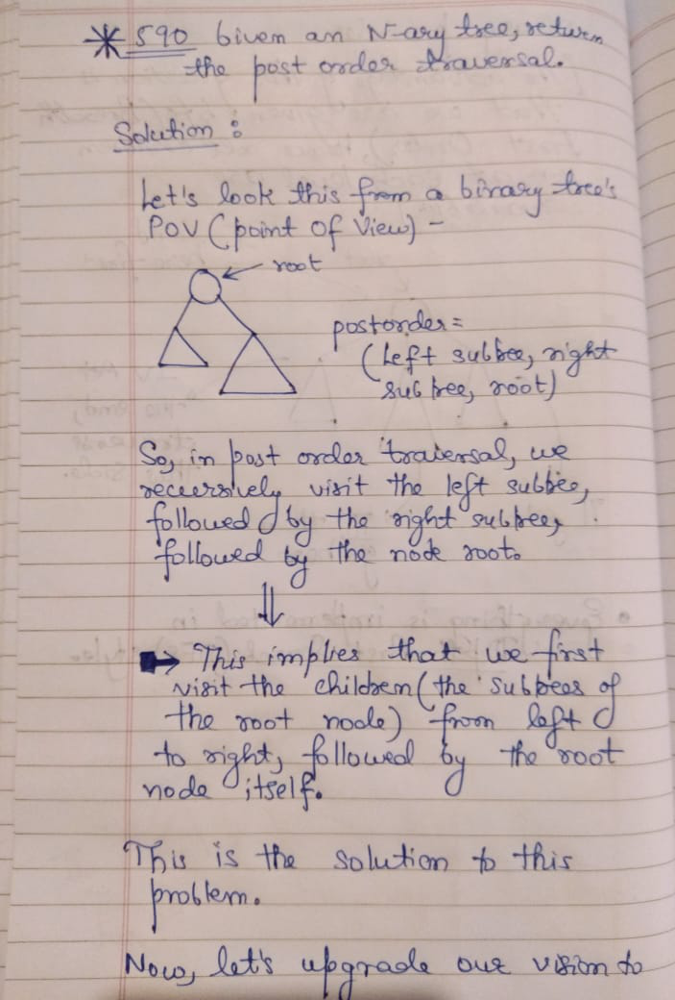 * 590 Given an N-ary tree, return
the post order traversal.
Solution :
Let's look this from a binary tree's
POV (point of View) -
root
postorder =
(left subtree, right
subtree, root)
So, in post order traversal, we
recursively visit the left subtree,
followed by the right subtree,
followed by the node root.
⇓
→ This implies that we first
visit the children (the subtrees of
the root node) from left
to right, followed by the root
node itself.
This is the solution to this
problem.
Now, let's upgrade our vision to